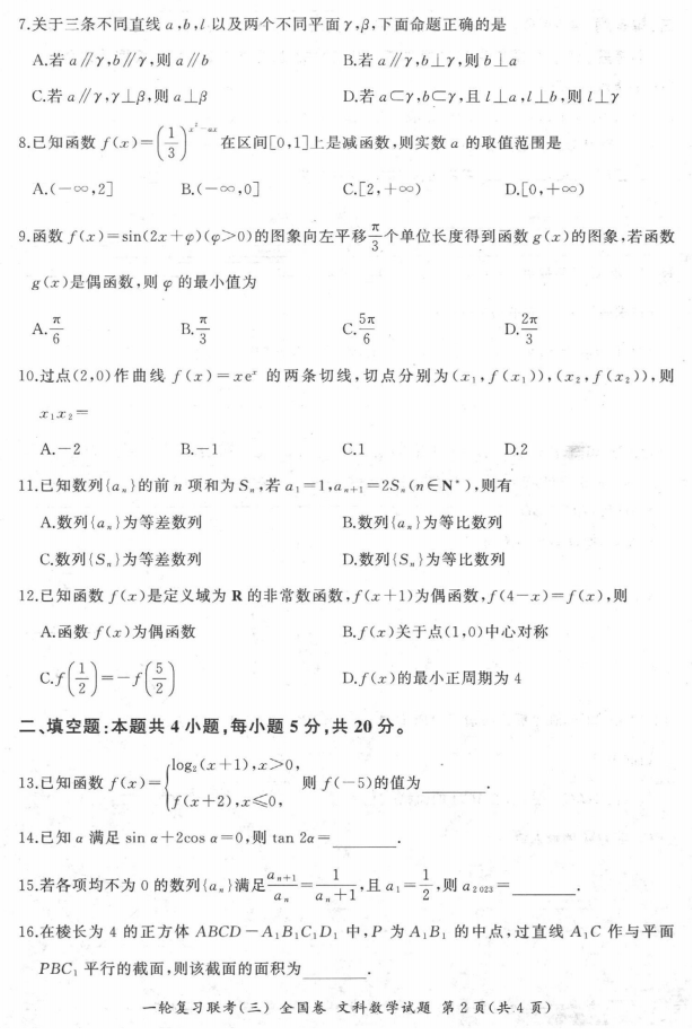 7.关于三条不同直线 a,b,l 以及两个不同平面 γ,β,下面命题正确的是
A.若 a∥γ,b∥γ,则 a∥b B.若 a∥γ,b⊥γ,则 b⊥a
C.若 a∥γ,γ⊥β,则 a⊥β D.若 a⊂γ,b⊂γ,且 l⊥a,l⊥b,则 l⊥γ
8.已知函数 f(x)=(1/3)^(x²-ax) 在区间[0,1]上是减函数,则实数 a 的取值范围是
A.(-∞,2] B.(-∞,0] C.[2,+∞) D.[0,+∞)
9.函数 f(x)=sin(2x+φ)(φ>0)的图象向左平移π/3个单位长度得到函数 g(x)的图象,若函数
g(x)是偶函数,则 φ 的最小值为
A.π/6 B.π/3 C.5π/6 D.2π/3
10.过点(2,0)作曲线 f(x)=xeˣ 的两条切线,切点分别为(x₁,f(x₁)),(x₂,f(x₂)),则
x₁x₂=
A.-2 B.-1 C.1 D.2
11.已知数列{aₙ}的前 n 项和为 Sₙ,若 a₁=1,aₙ₊₁=2Sₙ(n∈N*),则有
A.数列{aₙ}为等差数列 B.数列{aₙ}为等比数列
C.数列{Sₙ}为等差数列 D.数列{Sₙ}为等比数列
12.已知函数 f(x)是定义域为 R 的非常数函数,f(x+1)为偶函数,f(4-x)=f(x),则
A.函数 f(x)为偶函数 B.f(x)关于点(1,0)中心对称
C.f(1/2)=-f(5/2) D.f(x)的最小正周期为 4
二、填空题:本题共 4 小题,每小题 5 分,共 20 分。
13.已知函数 f(x)={log₂(x+1),x>0, f(x+2),x≤0, 则 f(-5)的值为______.
14.已知 α 满足 sin α+2cos α=0,则 tan 2α=______.
15.若各项均不为 0 的数列{aₙ}满足aₙ₊₁/aₙ=1/(aₙ+1),且 a₁=1/2,则 a₂₀₂₃=______.
16.在棱长为 4 的正方体 ABCD-A₁B₁C₁D₁ 中,P 为 A₁B₁ 的中点,过直线 A₁C 作与平面
PBC₁ 平行的截面,则该截面的面积为______.
一轮复习联考(三) 全国卷 文科数学试题 第 2 页(共 4 页)